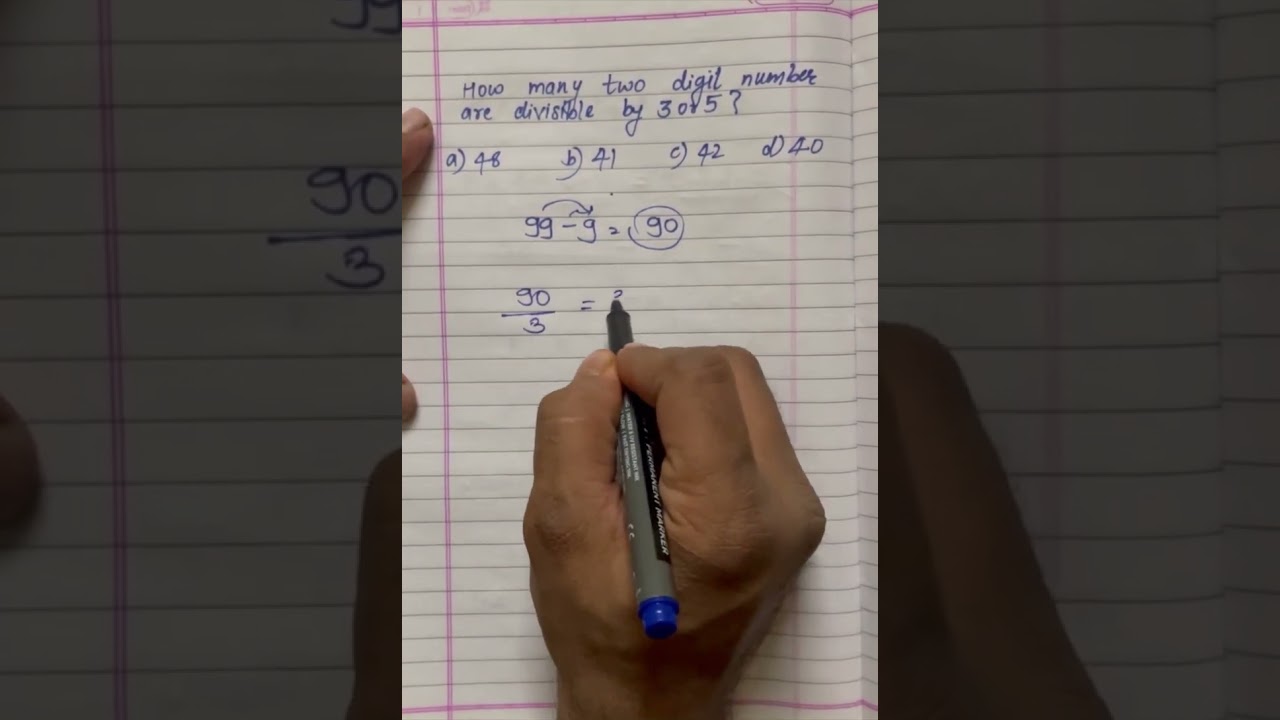 How many two digit number
are divisible by 3 or 5?
a) 48 b) 41 c) 42 d) 40
99 - 9 = 90
90
3
=
PERMANENT MARKER